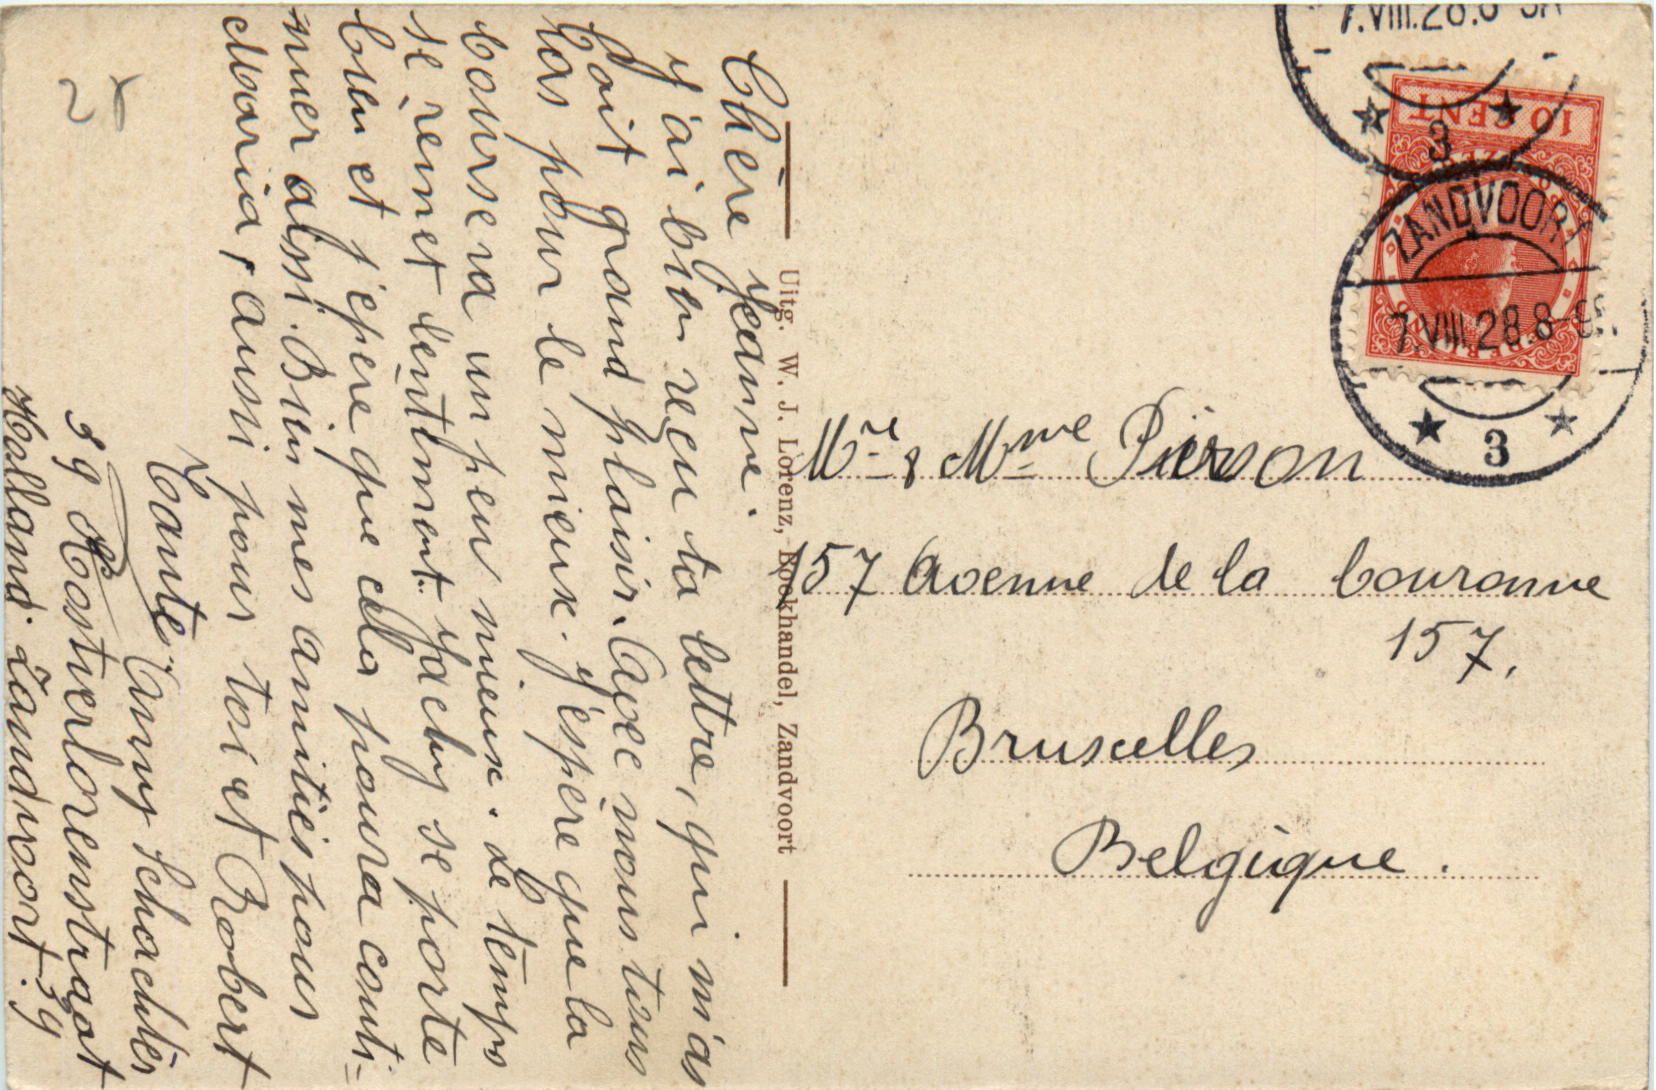 Chère Jeanne.
j'ai bien reçu ta lettre, qui m'as
fait grand plaisir. Avec nous tous
ças pour le mieux. j'espère que la
boursera un peu mieux. Le temps
se remet lentement. Jacky se porte
bien et j'epere que cela poura conti-
nuer ainsi. Bien mes amitiés pour
Maria, aussi pour toi et Robert
Tante Anny Schachtès
39 Kostverlorenstraat
Holland. Zandvoort. 39
25
Uitg. W. J. Lorenz, Boekhandel, Zandvoort
Mre & Mme Piërson
157 Avenue de la Couronne
157.
Bruxelles
Belgique.
7.VIII.28.8
3
10 CENT
ZANDVOORT
7.VIII.28.8-9
3